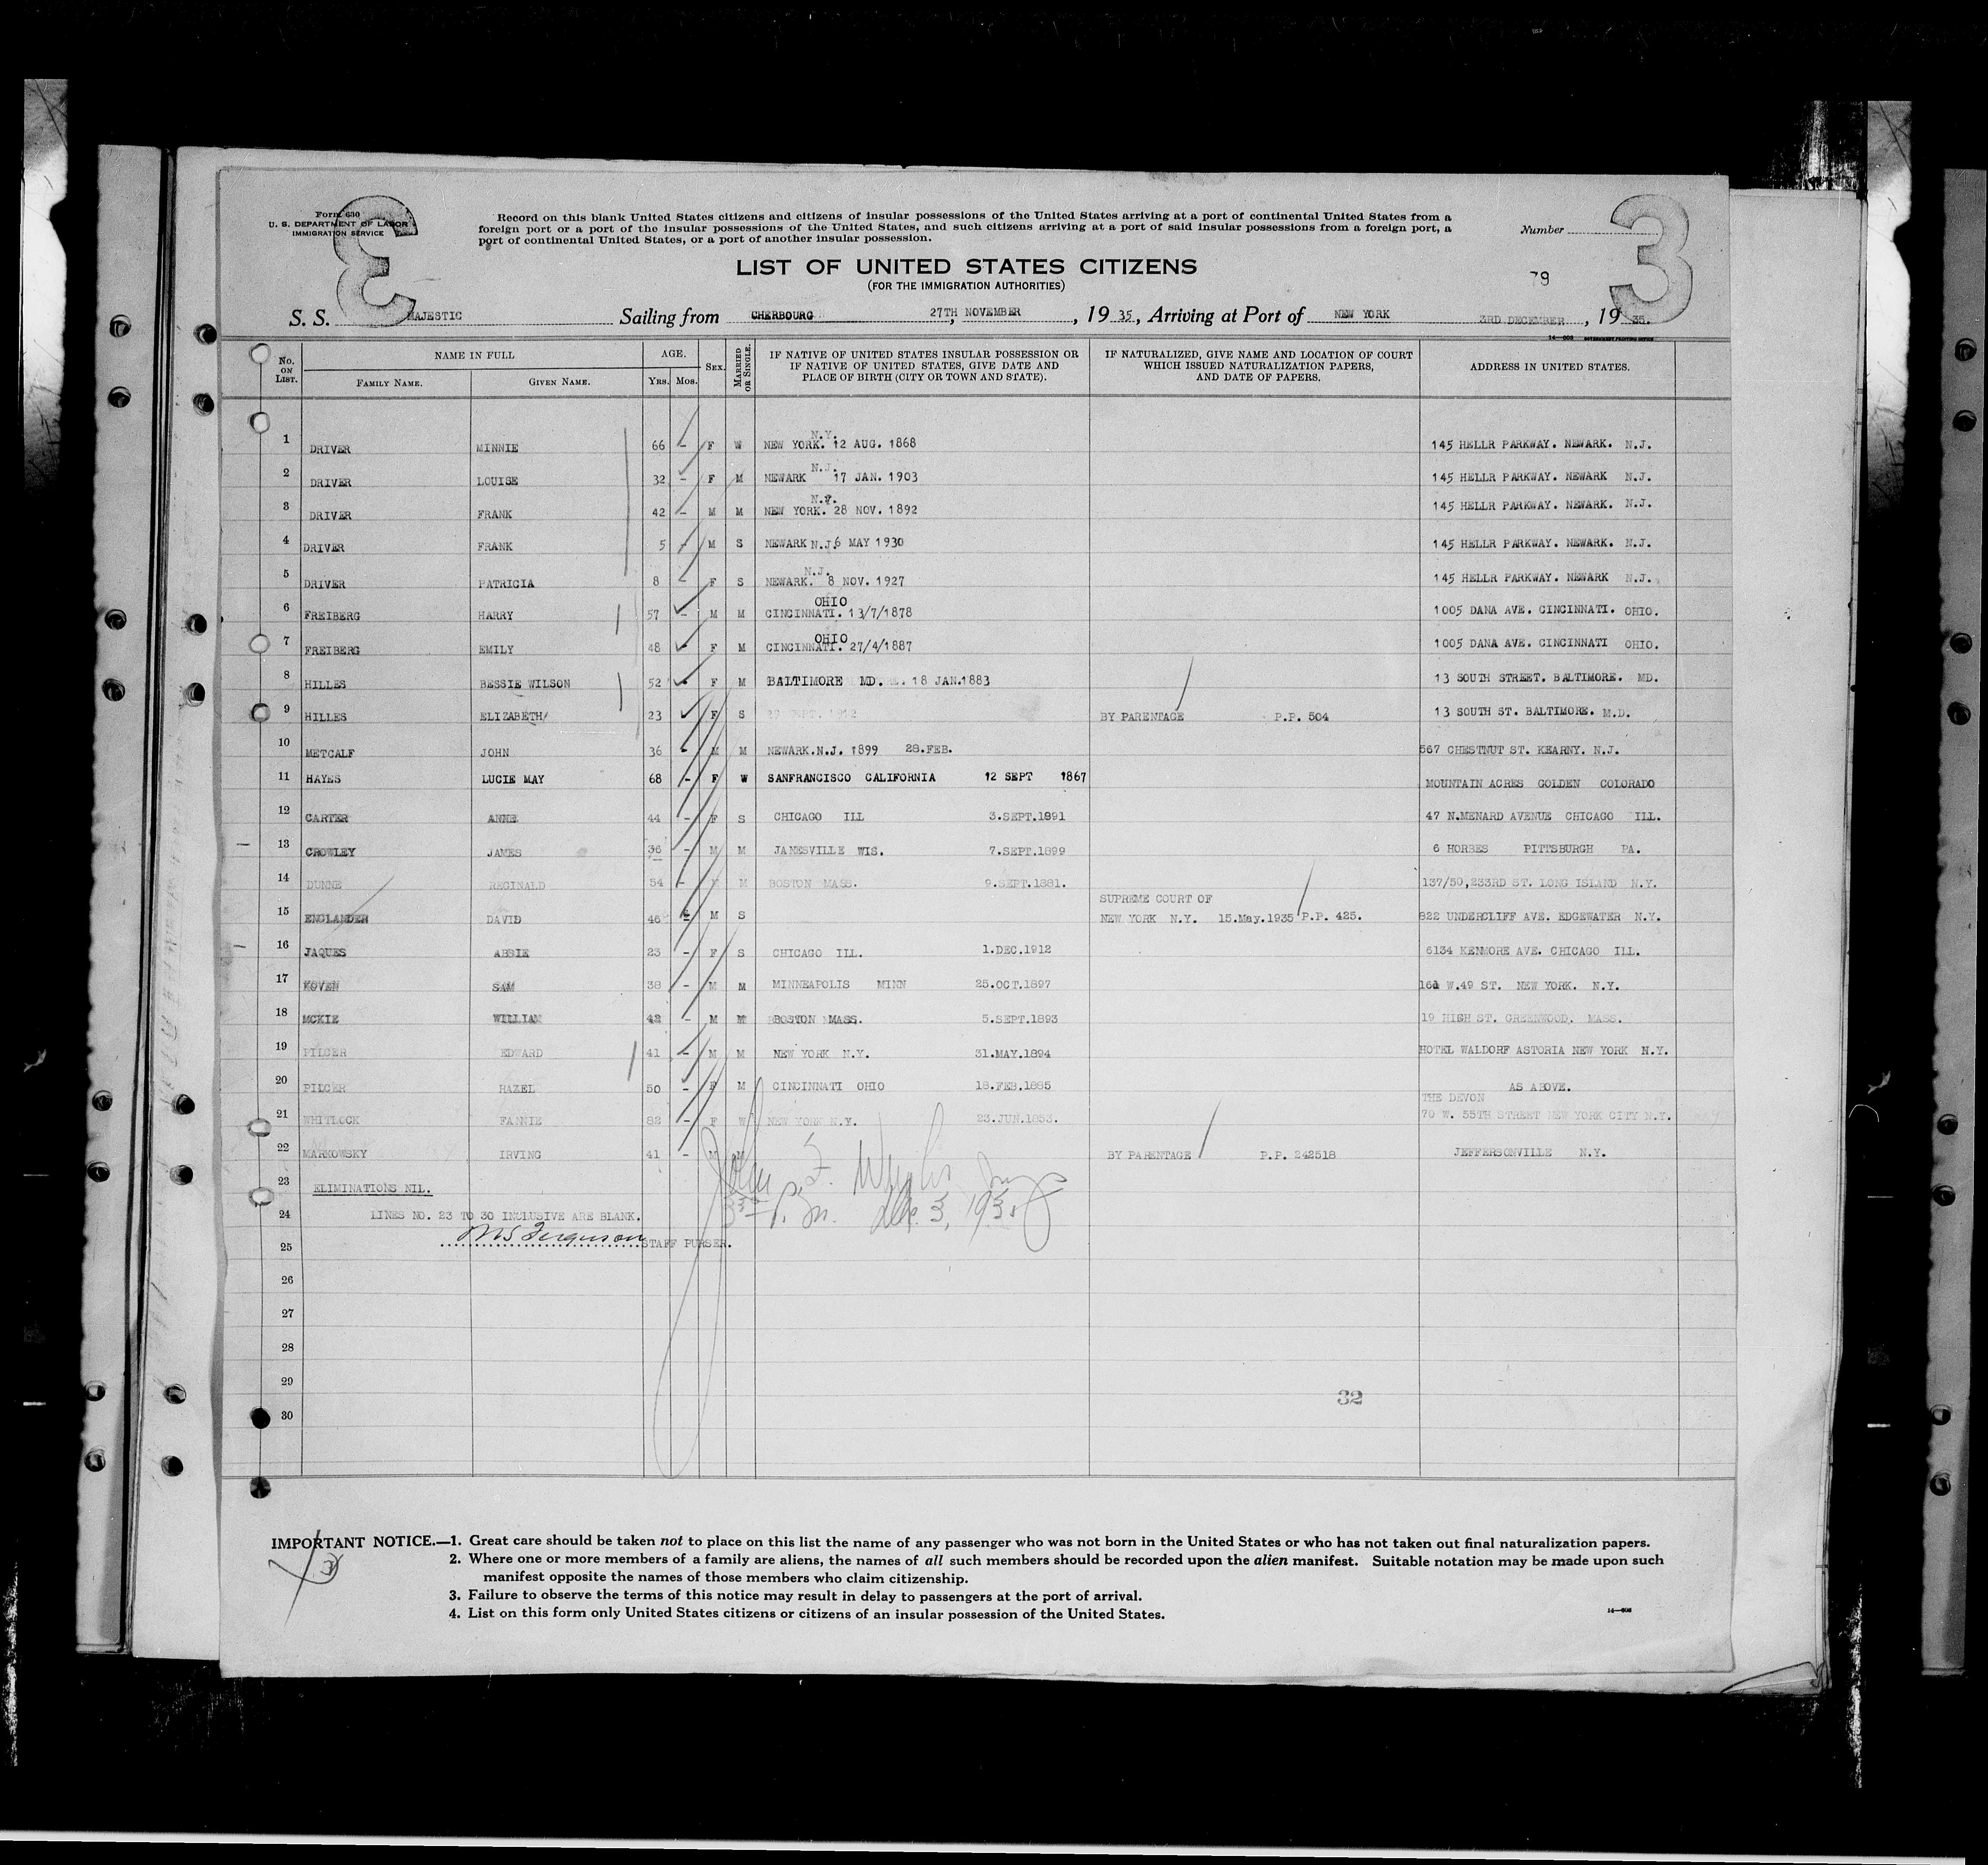 Form 630
U. S. DEPARTMENT OF LABOR
IMMIGRATION SERVICE
3
Record on this blank United States citizens and citizens of insular possessions of the United States arriving at a port of continental United States from a
foreign port or a port of the insular possessions of the United States, and such citizens arriving at a port of said insular possessions from a foreign port, a
port of continental United States, or a port of another insular possession.
Number
3
LIST OF UNITED STATES CITIZENS
(FOR THE IMMIGRATION AUTHORITIES)
79
S. S. MAJESTIC Sailing from CHERBOURG 27TH NOVEMBER, 1935, Arriving at Port of NEW YORK 3RD DECEMBER, 1935.
14—608 GOVERNMENT PRINTING OFFICE
No. ON LIST. NAME IN FULL FAMILY NAME. GIVEN NAME. AGE. YRS. MOS. SEX. MARRIED OR SINGLE. IF NATIVE OF UNITED STATES INSULAR POSSESSION OR IF NATIVE OF UNITED STATES, GIVE DATE AND PLACE OF BIRTH (CITY OR TOWN AND STATE). IF NATURALIZED, GIVE NAME AND LOCATION OF COURT WHICH ISSUED NATURALIZATION PAPERS, AND DATE OF PAPERS. ADDRESS IN UNITED STATES.
1 DRIVER MINNIE 66 - F W NEW YORK. N.Y. 12 AUG. 1868 145 HELLR PARKWAY. NEWARK. N.J.
2 DRIVER LOUISE 32 - F M NEWARK N.J. 17 JAN. 1903 145 HELLR PARKWAY. NEWARK N.J.
3 DRIVER FRANK 42 - M M NEW YORK. N.Y. 28 NOV. 1892 145 HELLR PARKWAY. NEWARK. N.J.
4 DRIVER FRANK 5 - M S NEWARK N.J. 6 MAY 1930 145 HELLR PARKWAY. NEWARK. N.J.
5 DRIVER PATRICIA 8 - F S NEWARK. N.J. 8 NOV. 1927 145 HELLR PARKWAY. NEWARK N.J.
6 FREIBERG HARRY 57 - M M CINCINNATI. OHIO 13/7/1878 1005 DANA AVE. CINCINNATI. OHIO.
7 FREIBERG EMILY 48 - F M CINCINNATI. OHIO 27/4/1887 1005 DANA AVE. CINCINNATI OHIO.
8 HILLES BESSIE WILSON 52 - F M BALTIMORE MD. 18 JAN.1883 13 SOUTH STREET. BALTIMORE. MD.
9 HILLES ELIZABETH 23 F S BY PARENTAGE P.P. 504 13 SOUTH ST. BALTIMORE. M.D.
10 METCALF JOHN 36 - M M NEWARK.N.J. 1899 28.FEB. 567 CHESTNUT ST. KEARNY. N.J.
11 HAYES LUCIE MAY 68 - F W SANFRANCISCO CALIFORNIA 12 SEPT 1867 MOUNTAIN ACRES GOLDEN COLORADO
12 CARTER ANNE 44 - F S CHICAGO ILL 3.SEPT.1891 47 N.MENARD AVENUE CHICAGO ILL.
13 CROWLEY JAMES 36 - M M JANESVILLE WIS. 7.SEPT.1899 6 HORBES PITTSBURGH PA.
14 DUNNE REGINALD 54 - M M BOSTON MASS. 9.SEPT.1881. 137/50,233RD ST. LONG ISLAND N.Y.
15 ENGLANDER DAVID 46 - M S SUPREME COURT OF
NEW YORK N.Y. 15.May.1935 P.P. 425. 822 UNDERCLIFF AVE. EDGEWATER N.Y.
16 JAQUES ABBIE 23 - F S CHICAGO ILL. 1.DEC.1912 6134 KENMORE AVE. CHICAGO ILL.
17 KOVEN SAM 38 - M M MINNEAPOLIS MINN 25.OCT.1897 W.49 ST. NEW YORK. N.Y.
18 MCKIE WILLIAM 42 - M M BOSTON MASS. 5.SEPT.1893 19 HIGH ST. GREENWOOD. MASS.
19 PILCER EDWARD 41 - M M NEW YORK N.Y. 31.MAY.1894 HOTEL WALDORF ASTORIA NEW YORK N.Y.
20 PILCER HAZEL 50 - F M CINCINNATI OHIO 18.FEB.1885 AS ABOVE.
21 WHITLOCK FANNIE 82 - F W NEW YORK N.Y. 23.JUN.1853. THE DEVON
70 W. 55TH STREET NEW YORK CITY N.Y.
22 MARKOWSKY IRVING 41 - M BY PARENTAGE P.P. 242518 JEFFERSONVILLE N.Y.
23 ELIMINATIONS NIL.
24 LINES NO. 23 TO 30 INCLUSIVE ARE BLANK.
P.M. Dec 3, 1935
25 Ferguson STAFF PURSER.
26
27
28
29
32
30
IMPORTANT NOTICE.—1. Great care should be taken not to place on this list the name of any passenger who was not born in the United States or who has not taken out final naturalization papers.
2. Where one or more members of a family are aliens, the names of all such members should be recorded upon the alien manifest. Suitable notation may be made upon such
manifest opposite the names of those members who claim citizenship.
3. Failure to observe the terms of this notice may result in delay to passengers at the port of arrival.
4. List on this form only United States citizens or citizens of an insular possession of the United States.
14—608